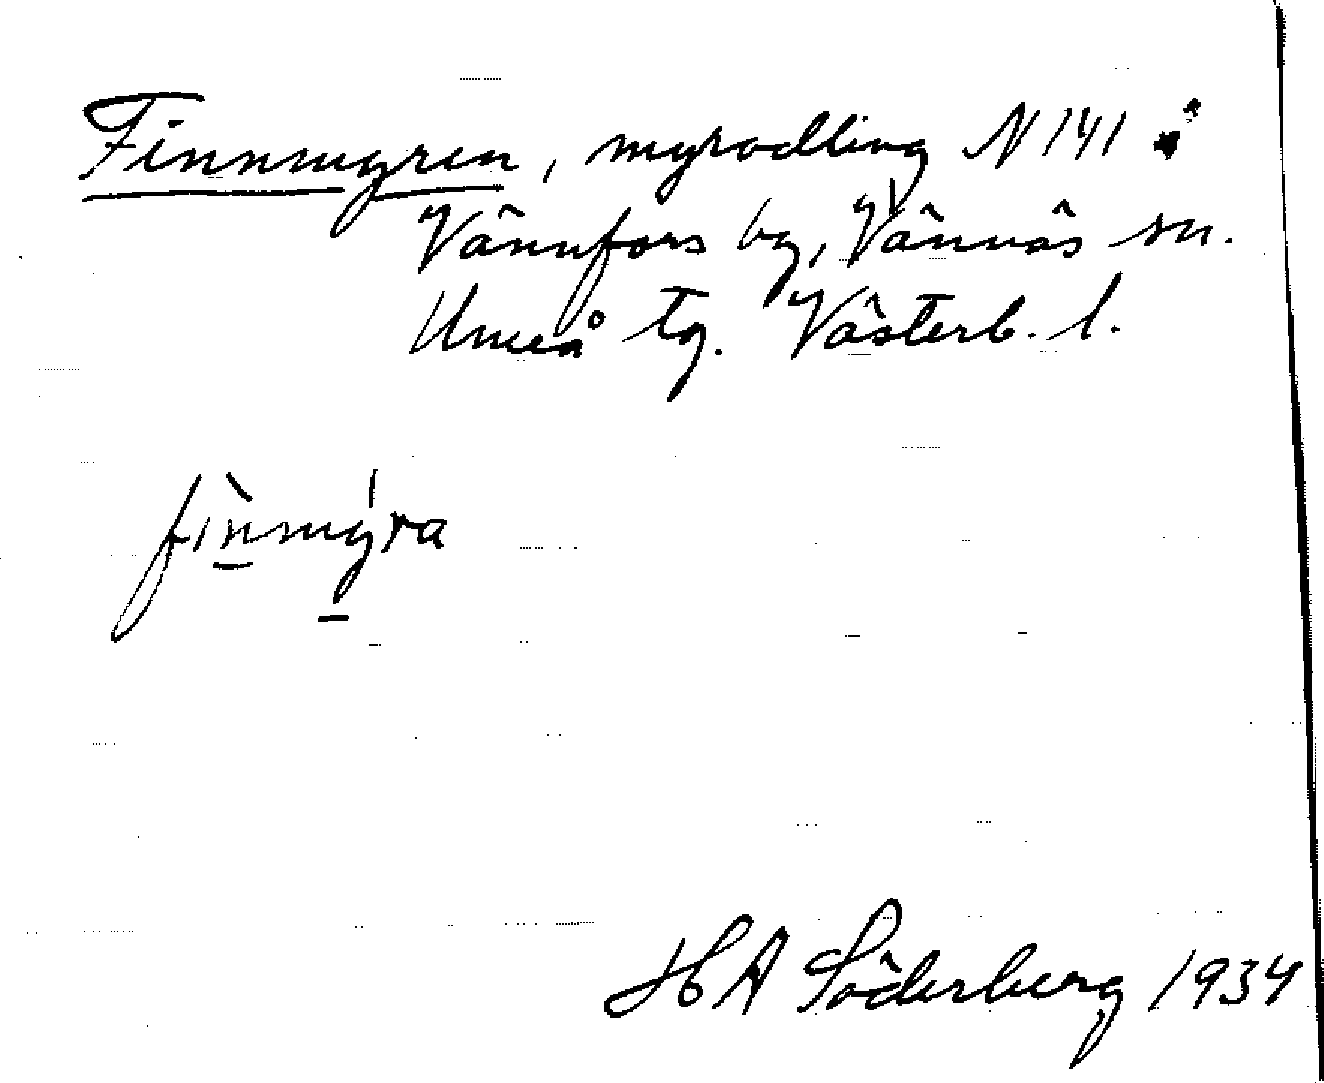 Finnmyren, myrodling N 141 å
Vännfors by, Vännäs sn.
Umeå tg. Västerb. l.
fìnmýra
HA Söderberg 1934